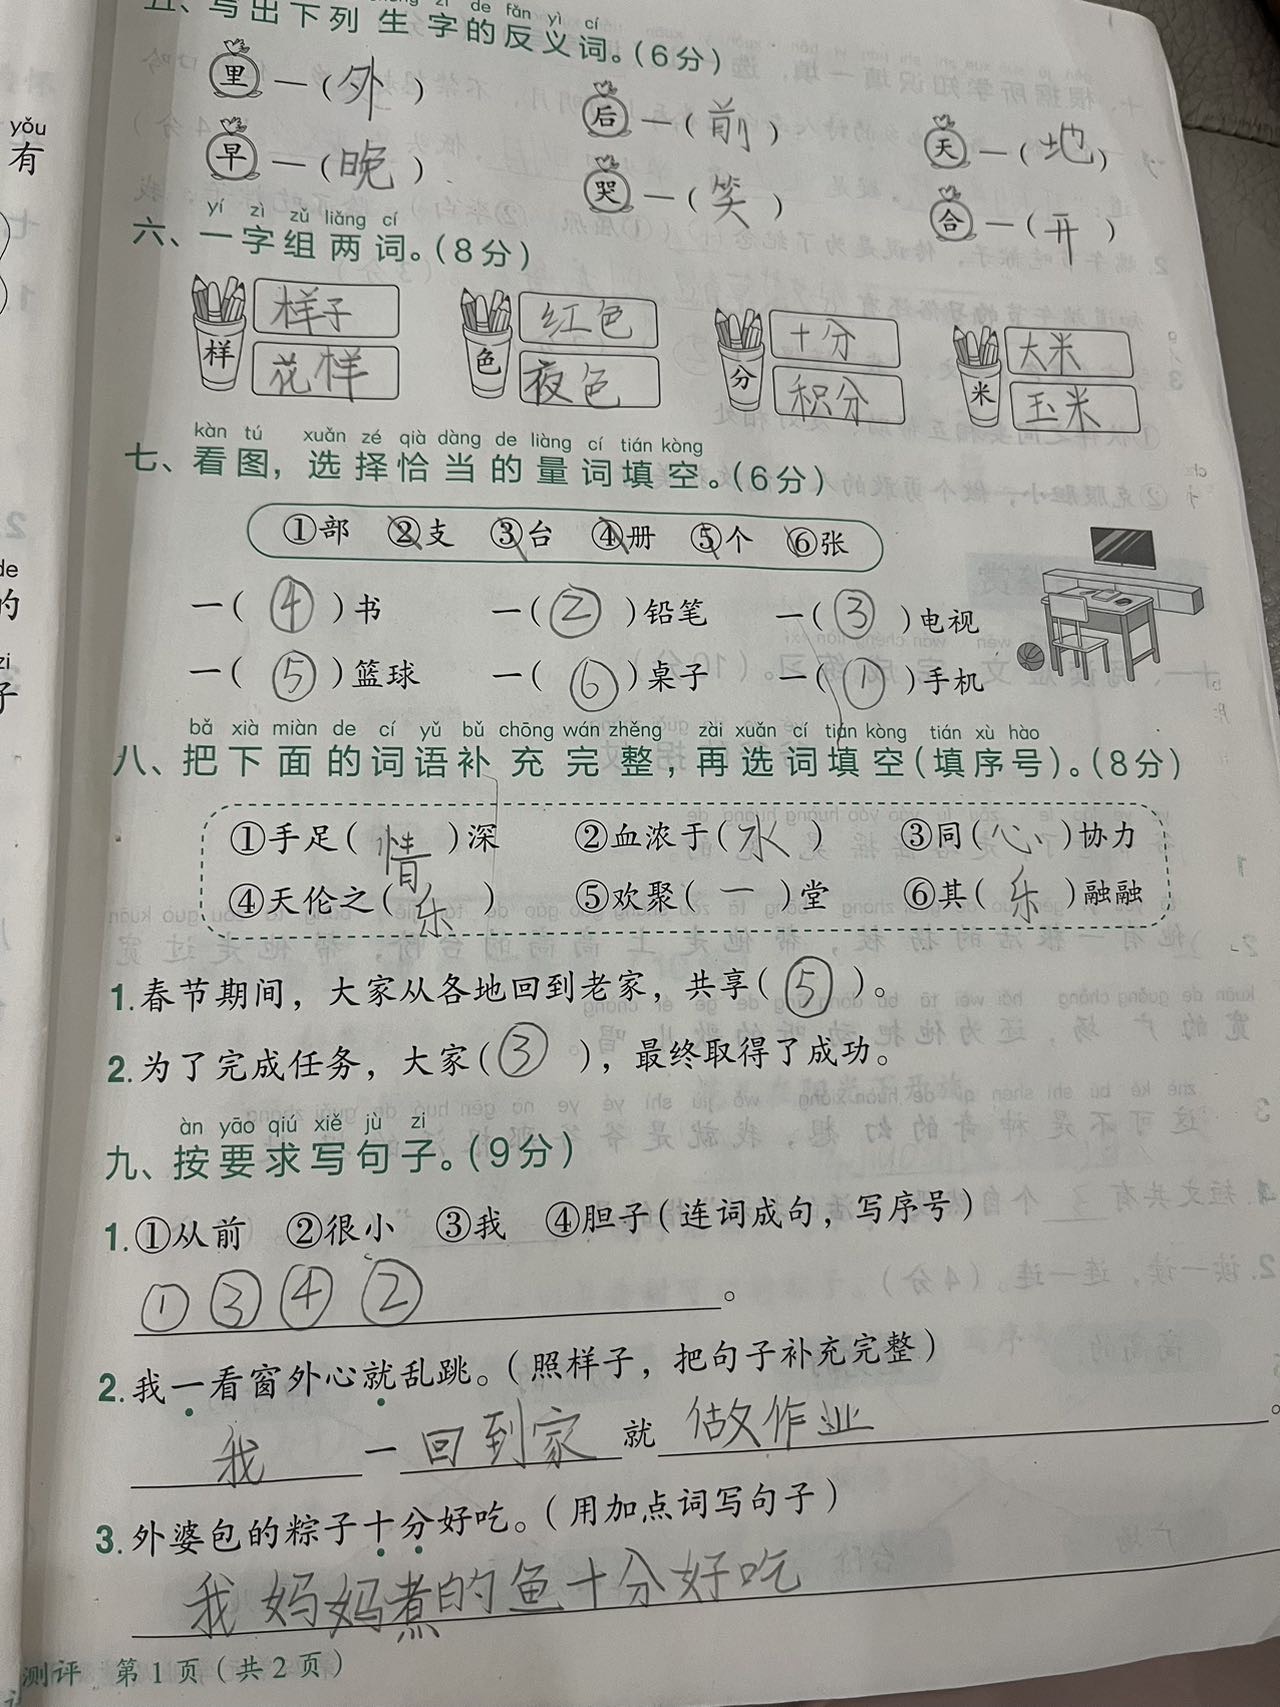 五、写出下列生字的反义词。(6分)
zì de fǎn yì cí
里—(外) 后—(前) 天—(地)
早—(晚) 哭—(笑) 合—(开)
yí zì zǔ liǎng cí
六、一字组两词。(8分)
样 样子 色 红色 分 十分 米 大米
花样 夜色 积分 玉米
kàn tú xuǎn zé qià dàng de liàng cí tián kòng
七、看图，选择恰当的量词填空。(6分)
①部 ②支 ③台 ④册 ⑤个 ⑥张
一(④)书 一(②)铅笔 一(③)电视
一(⑤)篮球 一(⑥)桌子 一(①)手机
bǎ xià miàn de cí yǔ bǔ chōng wán zhěng zài xuǎn cí tián kòng tián xù hào
八、把下面的词语补充完整，再选词填空(填序号)。(8分)
①手足(情)深 ②血浓于(水) ③同(心)协力
④天伦之(乐) ⑤欢聚(一)堂 ⑥其(乐)融融
1.春节期间，大家从各地回到老家，共享(⑤)。
2.为了完成任务，大家(③)，最终取得了成功。
àn yāo qiú xiě jù zi
九、按要求写句子。(9分)
1.①从前 ②很小 ③我 ④胆子(连词成句，写序号)
①③④②。
2.我一看窗外心就乱跳。(照样子，把句子补充完整)
我一回到家就做作业。
3.外婆包的粽子十分好吃。(用加点词写句子)
我妈妈煮的鱼十分好吃
测评 第1页(共2页)
yǒu
有